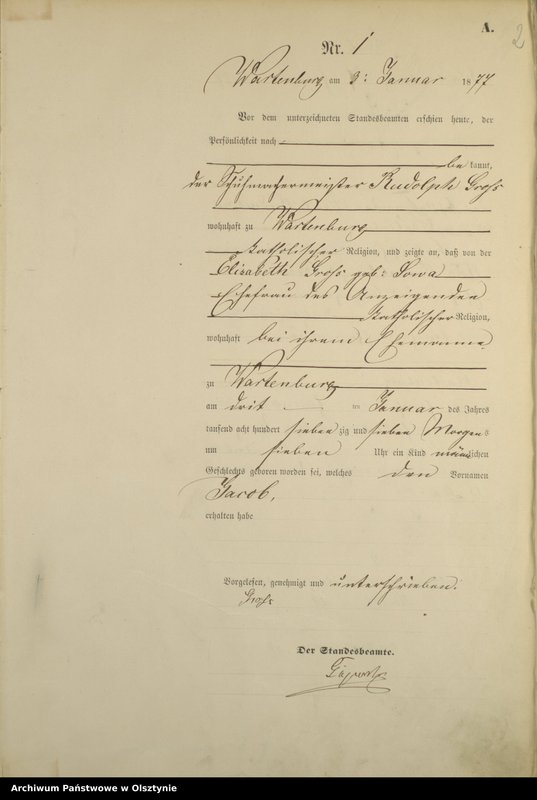 A.
2
Nr. 1
Wartenburg am 3: Januar 1877
Vor dem unterzeichneten Standesbeamten erschien heute, der
Persönlichkeit nach
be kannt,
der Schuhmachermeister Rudolph Groß
wohnhaft zu Wartenburg
katholischer Religion, und zeigte an, daß von der
Elisabeth Groß geb: Sowa
Ehefrau des Anzeigenden
katholischer Religion,
wohnhaft bei ihrem Ehemanne
zu Wartenburg
am drit ten Januar des Jahres
tausend acht hundert sieben zig und sieben Morgens
um sieben Uhr ein Kind männlichen
Geschlechts geboren worden sei, welches den Vornamen
Jacob,
erhalten habe
Vorgelesen, genehmigt und unterschrieben.
Groß
Der Standesbeamte.
Archiwum Państwowe w Olsztynie